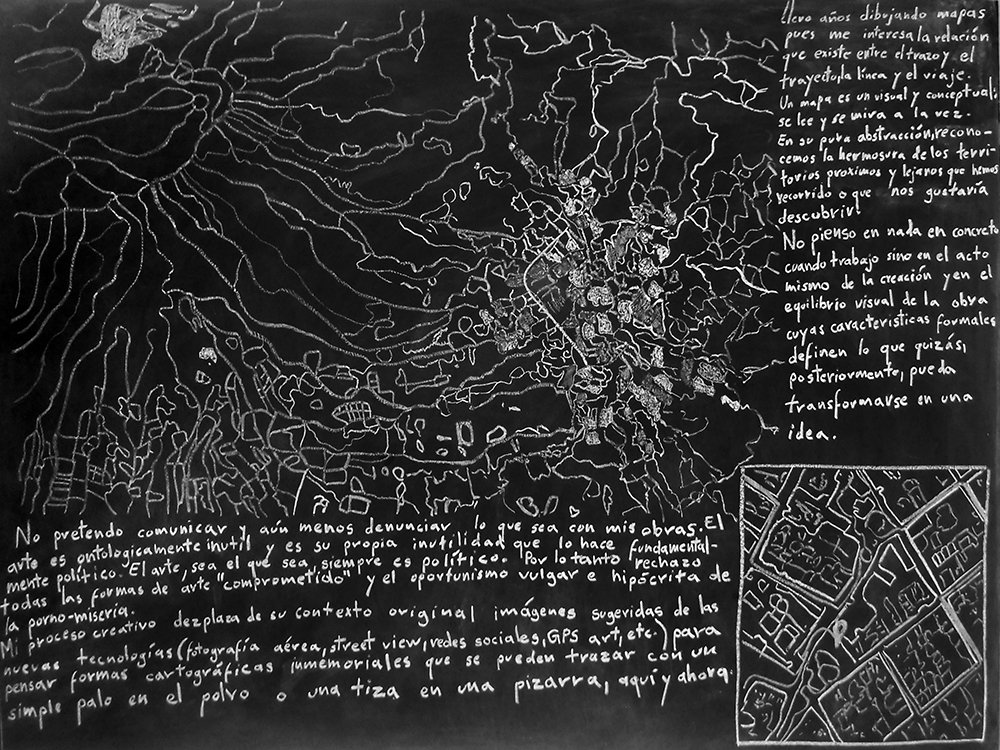 llevo años dibujando mapas
pues me interesa la relación
que existe entre el trazo y el
trayecto, la línea y el viaje.
Un mapa es un visual y conceptual:
se lee y se mira a la vez.
En su pura abstracción, recono-
cemos la hermosura de los terri-
torios proximos y lejanos que hemos
recorrido o que nos gustaría
descubrir.
No pienso en nada en concreto
cuando trabajo sino en el acto
mismo de la creación y en el
equilibrio visual de la obra
cuyas características formales
definen lo que quizás,
posteriormente, pueda
transformarse en una
idea.
No pretendo comunicar y aún menos denunciar lo que sea con mis obras. El
arte es ontologicamente inutil y es su propia inutilidad que lo hace fundamental-
mente político. El arte, sea el que sea, siempre es político. Por lo tanto rechazo
todas las formas de arte "comprometido" y el oportunismo vulgar e hipócrita de
la porno-miseria.
Mi proceso creativo dezplaza de su contexto original imágenes sugeridas de las
nuevas tecnologías (fotografía aérea, street view, redes sociales, GPS art, etc.) para
pensar formas cartográficas inmemoriales que se pueden trazar con un
simple palo en el polvo o una tiza en una pizarra, aquí y ahora.